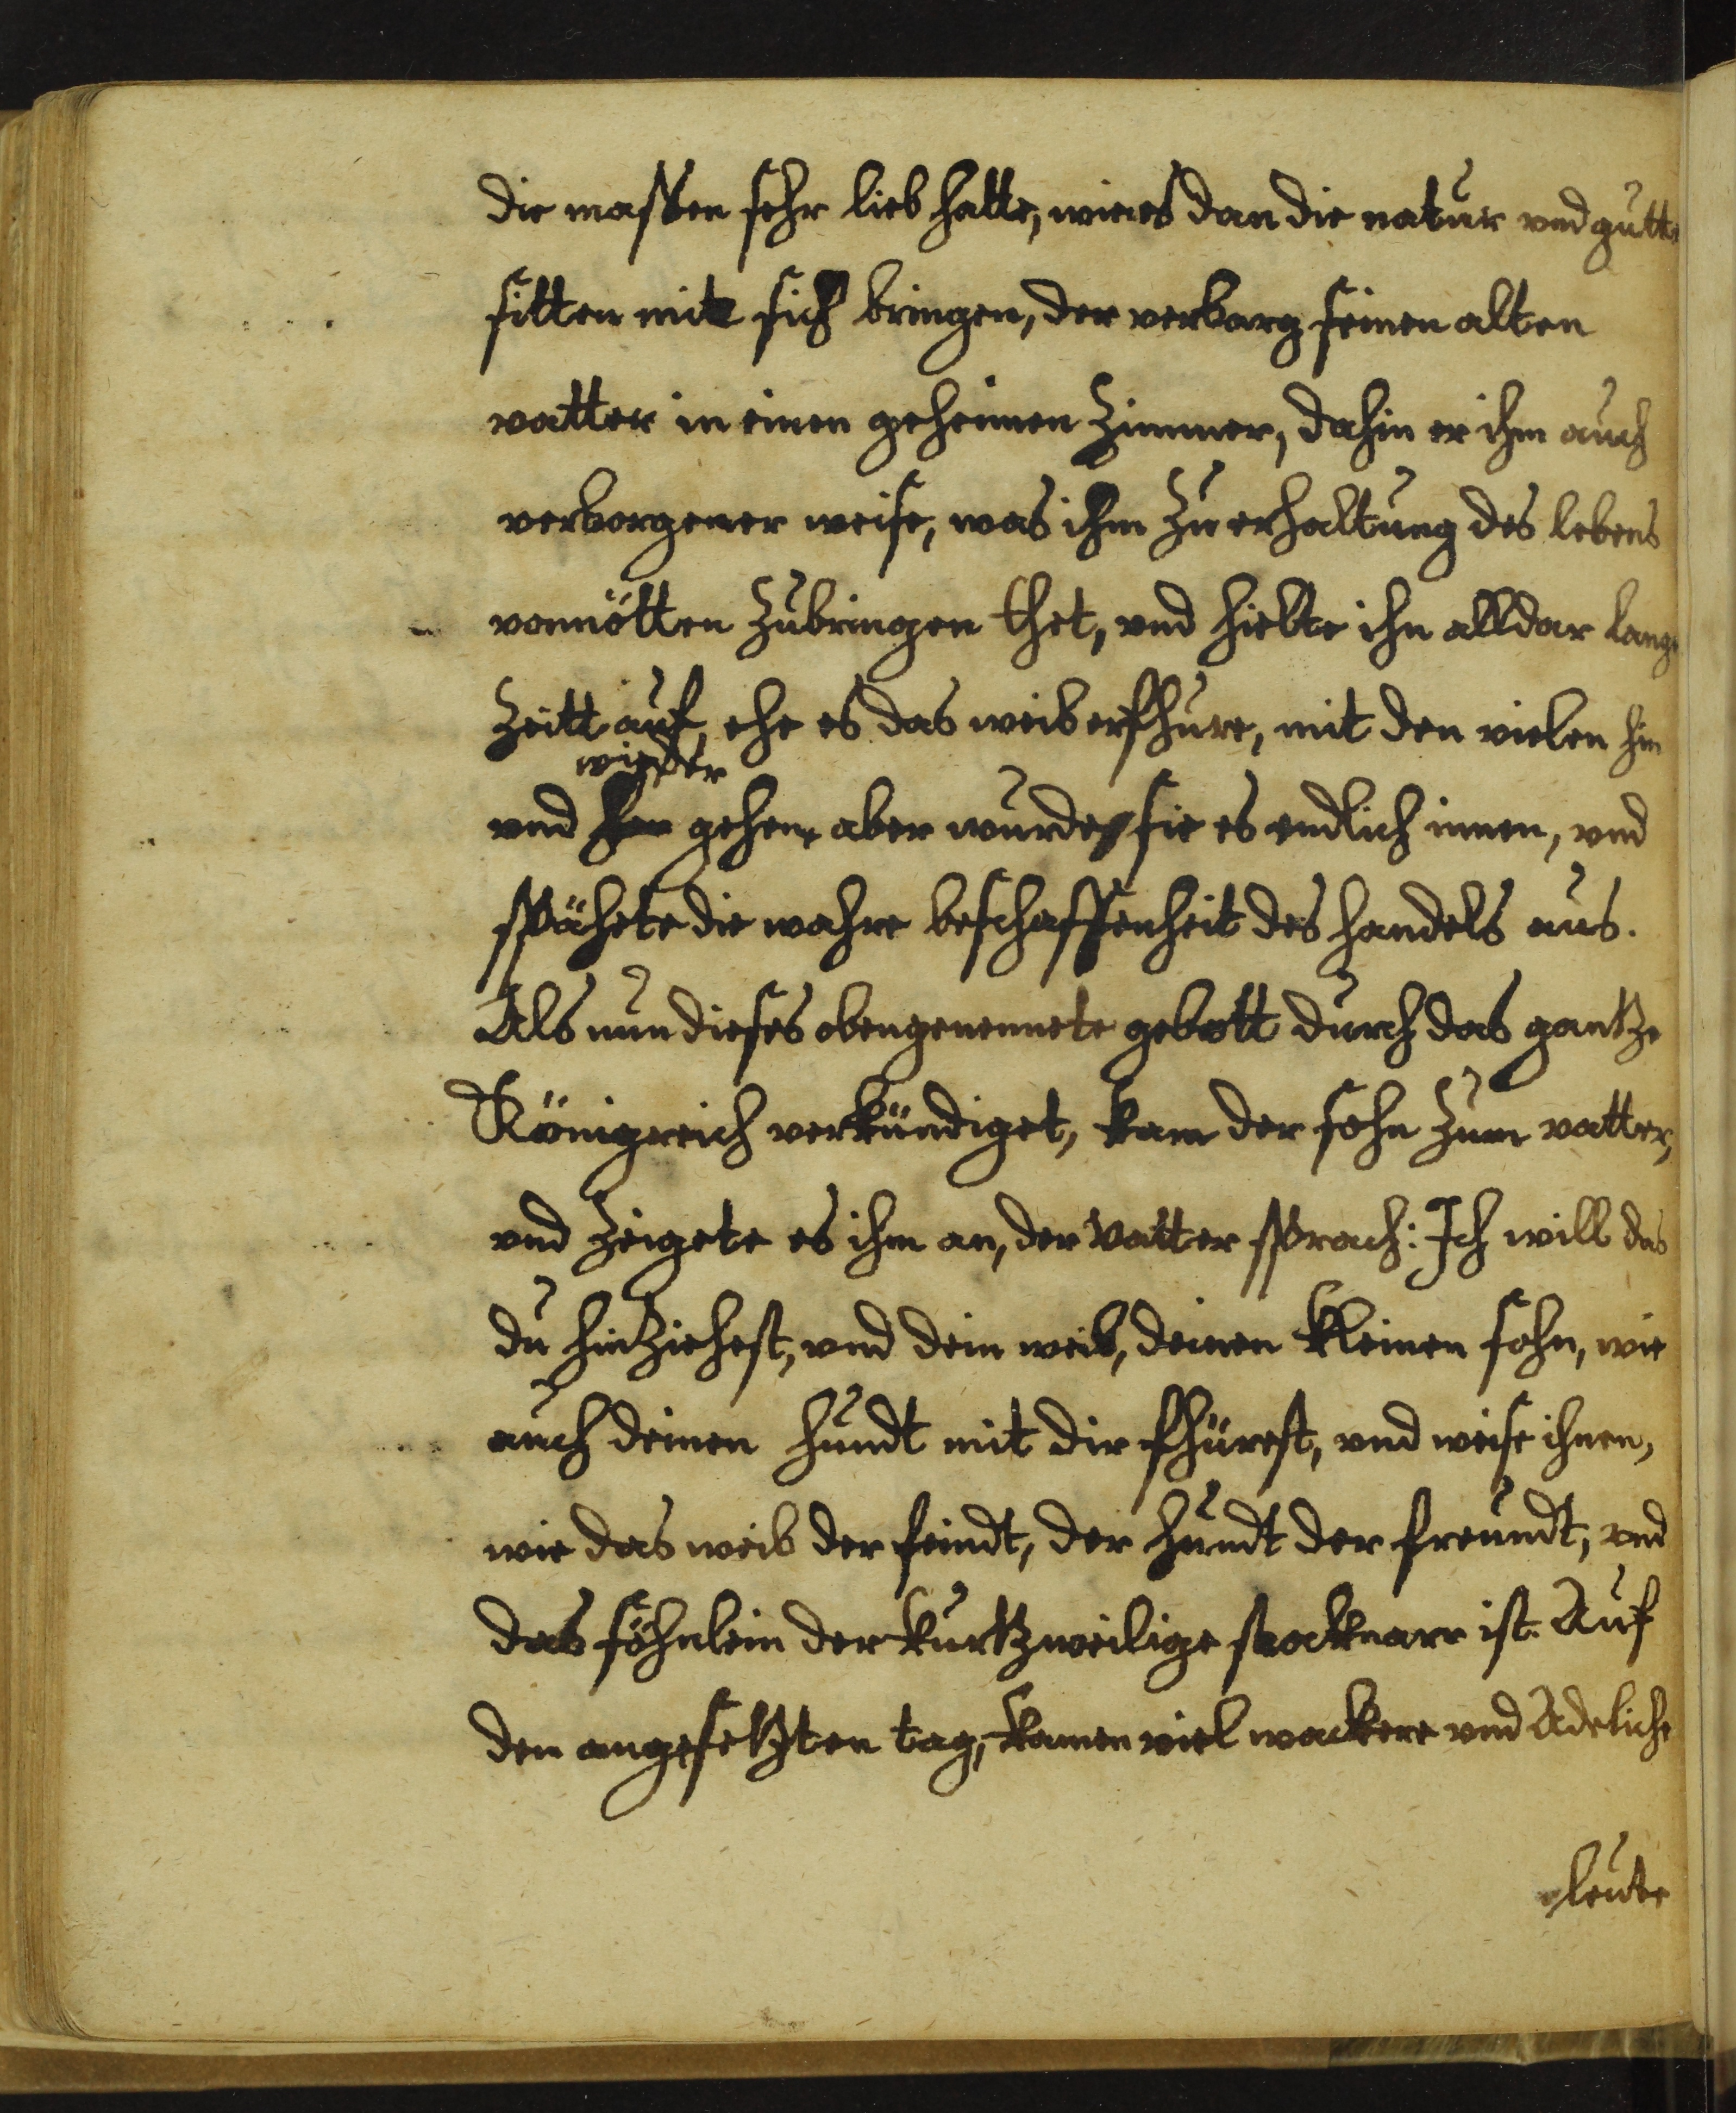 die massen sehr lieb hatte, wie es dan die natur vnd gutte
sitten mit sich bringen, der verbarg seinen alten
vatter in einen geheimen Zimmer, dahin er ihm auch
verborgener weise, was ihm zu erhaltung des lebens
vonnötten zubringen thet, vnd hielte ihn alldar lange
Zeitt auf, ehe es das weib erfhure, mit den vielen hin
wieder
vnd her gehen, aber wurde sie es endlich innen, vnd
spähete die wahre beschaffenheit des handels aus.
Als nun dieses obengenennete gebott durch das gantze
Königreich verkündiget, kam der sohn zum vatter,
vnd zeigete es ihm an, der Vatter sprach: Ich will das
du hinziehest, vnd dein weib, deinen kleinen sohn, wie
auch deinen hundt mit dir fhürest, vnd weise ihnen,
wie das weib der feindt, der hundt der freundt, vnd
das söhnlein der kurtzweilige stocknarr ist. Auf
den angesetzten tag, kamen viel wackere vnd Adeliche
leute